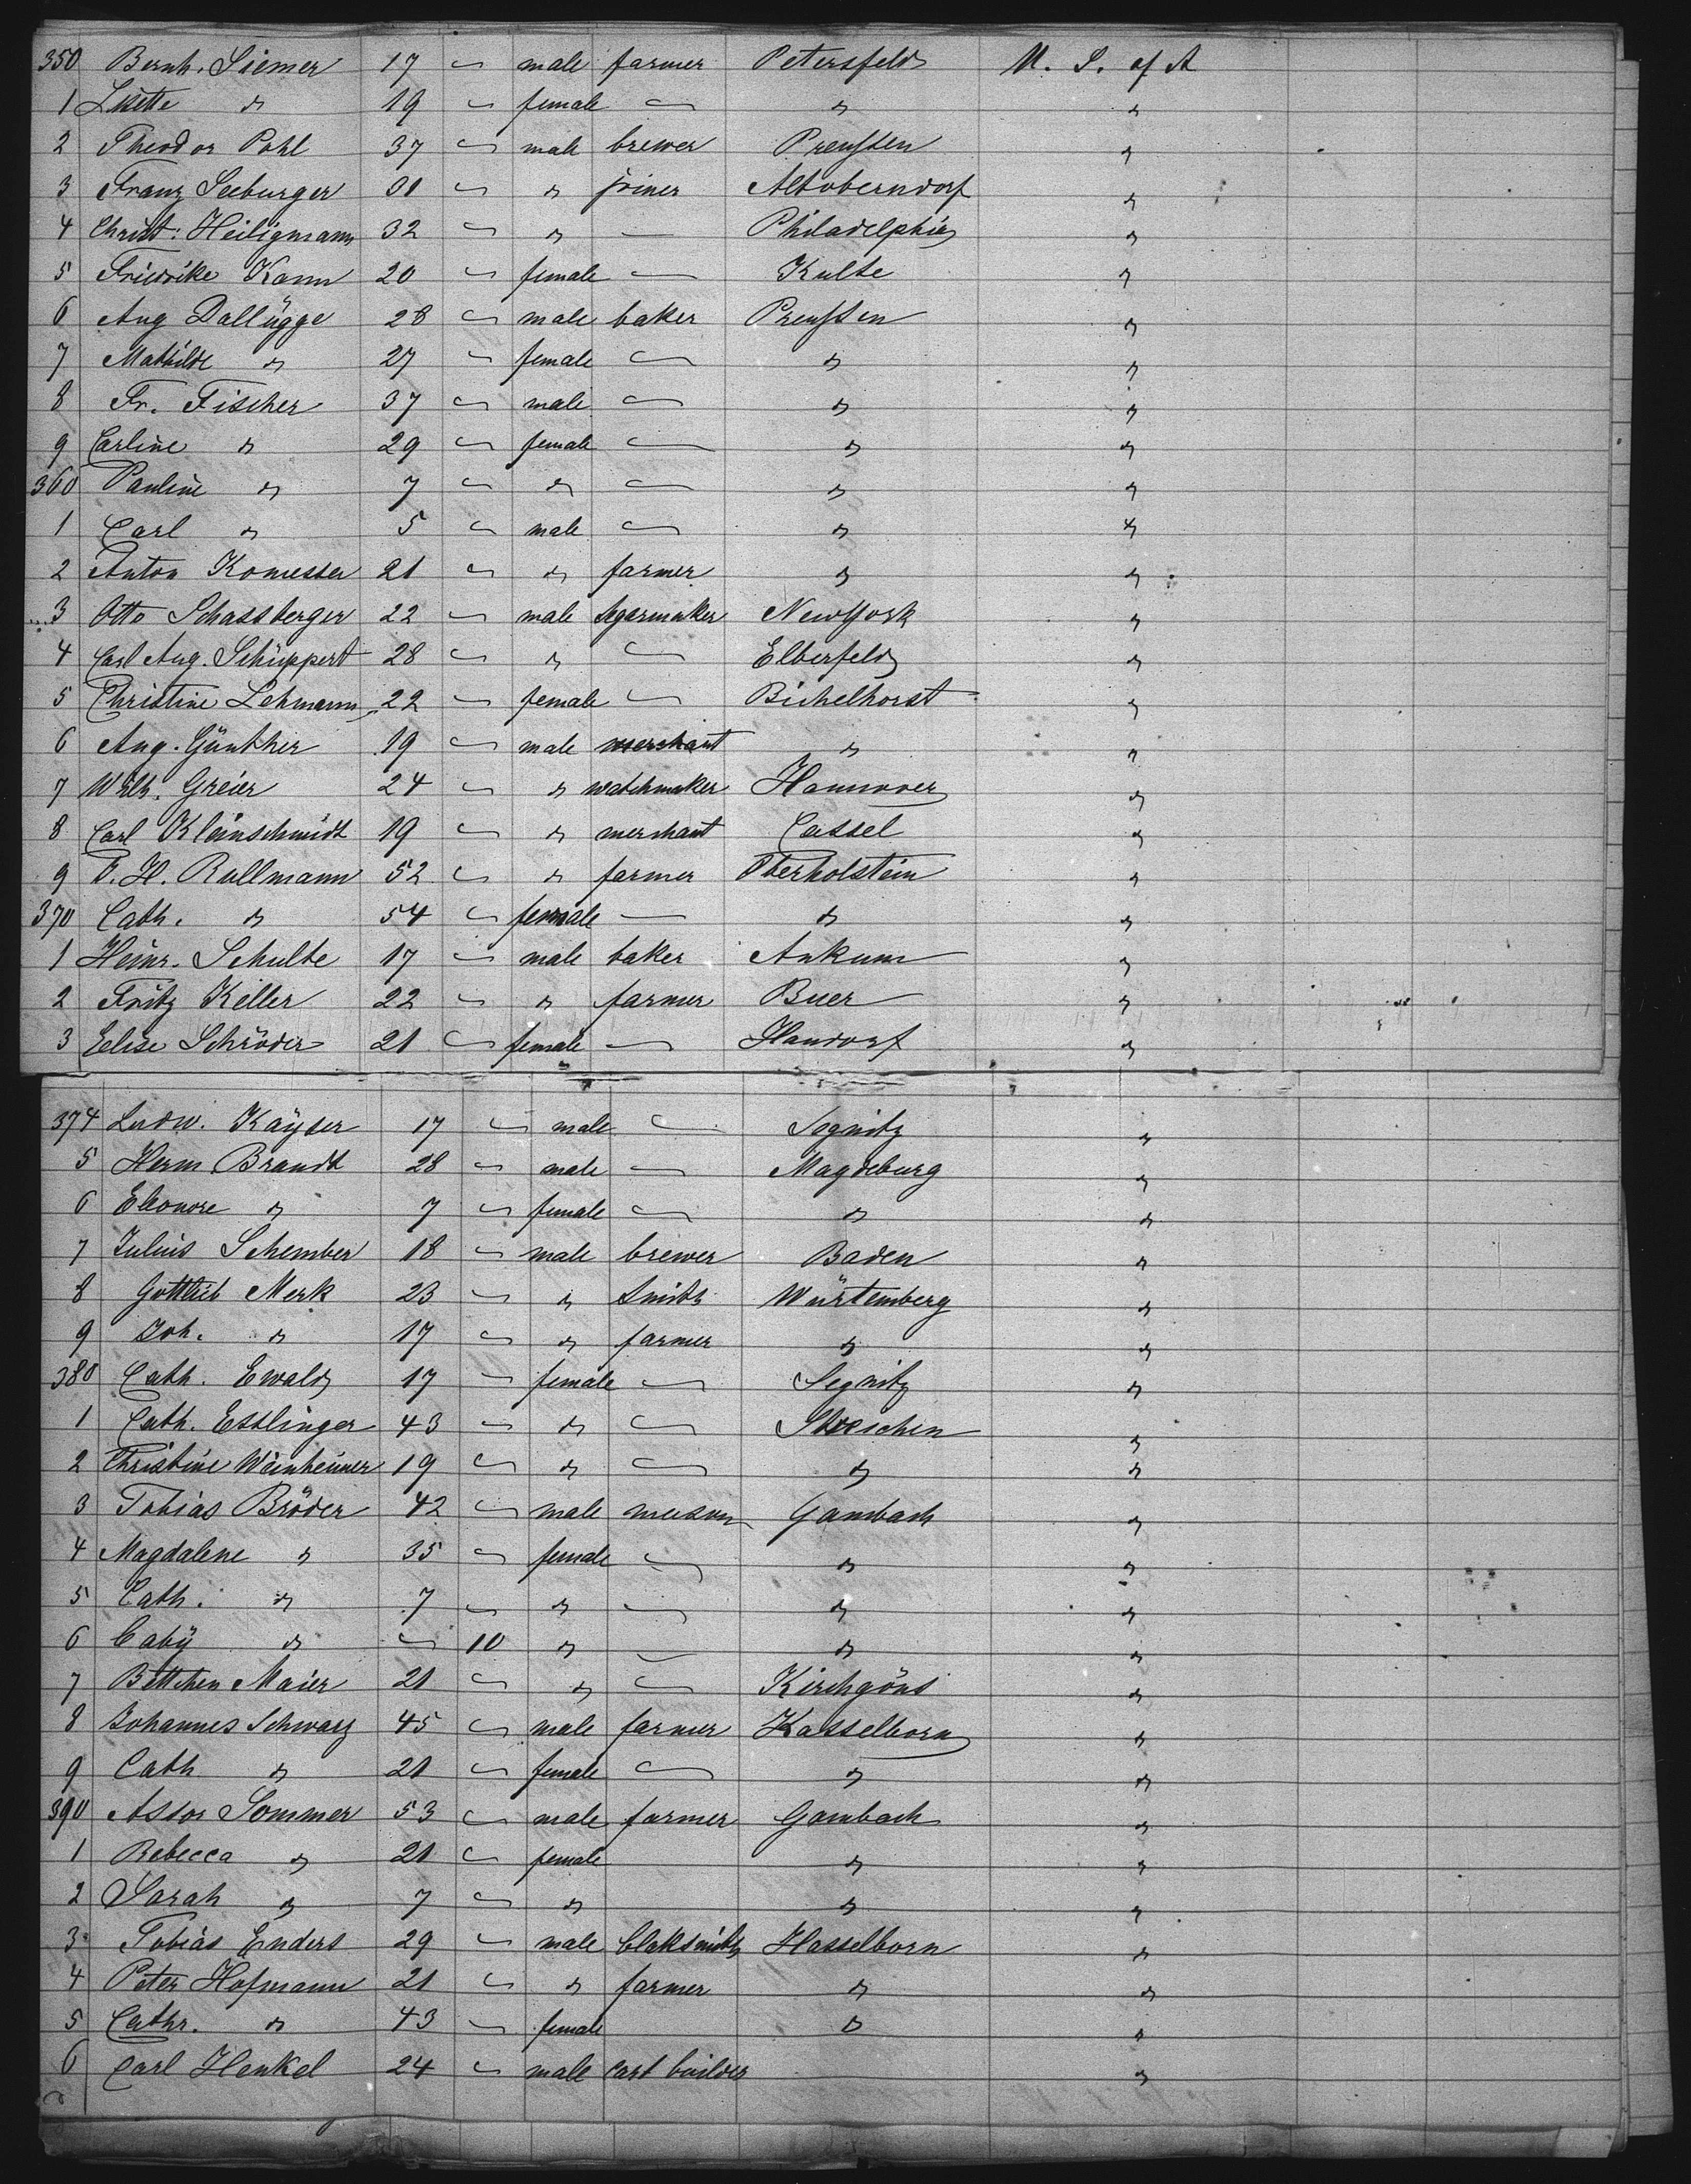 350 Bernh. Siemer 17 — male farmer Petersfeld U. S. of A
1 Lisette " 19 — female — " "
2 Theodor Pohl 37 — male brewer Preussen "
3 Franz Seeburger 31 — " joiner Altoberndorf "
4 Christ: Heiligmann 32 — " — Philadelphia "
5 Friedrike Kann 20 — female — Kulte "
6 Aug Dallügge 28 — male baker Preussen "
7 Mathilde " 27 — female — " "
8 Fr. Fischer 37 — male — " "
9 Carline " 29 — female — " "
360 Pauline " 7 — " — " "
1 Carl " 5 — male — " "
2 Anton Komesser 21 — " farmer " "
3 Otto Schassberger 22 — male segarmaker NewYork "
4 Carl Aug. Schüppert 28 — " — Elberfeld "
5 Christine Lehmann 22 — female — Bichelhorst "
6 Aug. Günther 19 — male merchant " "
7 Wilh. Greier 24 — " watchmaker Hannover "
8 Carl Kleinschmidt 19 — " merchant Cassel "
9 F. H. Rullmann 52 — " farmer Oberholstein "
370 Cath. " 54 — female — " "
1 Heinr. Schulte 17 — male baker Ankum "
2 Fritz Keller 22 — " farmer Buer "
3 Elise Schröder 21 — female — Handorf "
374 Ludw. Kayser 17 — male — Segnitz "
5 Herm. Brandt 28 — male — Magdeburg "
6 Eleonore " 7 — female — " "
7 Julius Schember 18 — male brewer Baden "
8 Gottlieb Merk 23 — " Smith Würtemberg "
9 Joh. " 17 — " farmer " "
380 Cath. Ewald 17 — female — Segnitz "
1 Cath. Esslinger 43 — " — "
2 Christine Weinheimer 19 — " — " "
3 Tobias Bröder 42 — male meason Gambach "
4 Magdalene " 35 — female — " "
5 Cath. " 7 — " — " "
6 Baby " — 10 " — " "
7 Bettchen Maier 21 — " — Kirchgöns "
8 Johannes Schwarz 45 — male farmer Kasselborn "
9 Cath " 21 — female — " "
390 Assor Sommer 53 — male farmer Gambach "
1 Rebecca " 21 — female " "
2 Sarah " 7 — " " "
3 Tobias Enders 29 — male blaksmith Hasselborn "
4 Peter Hofmann 21 — " farmer " "
5 Cathr. " 43 — female " "
6 Carl Henkel 24 — male cart builder "